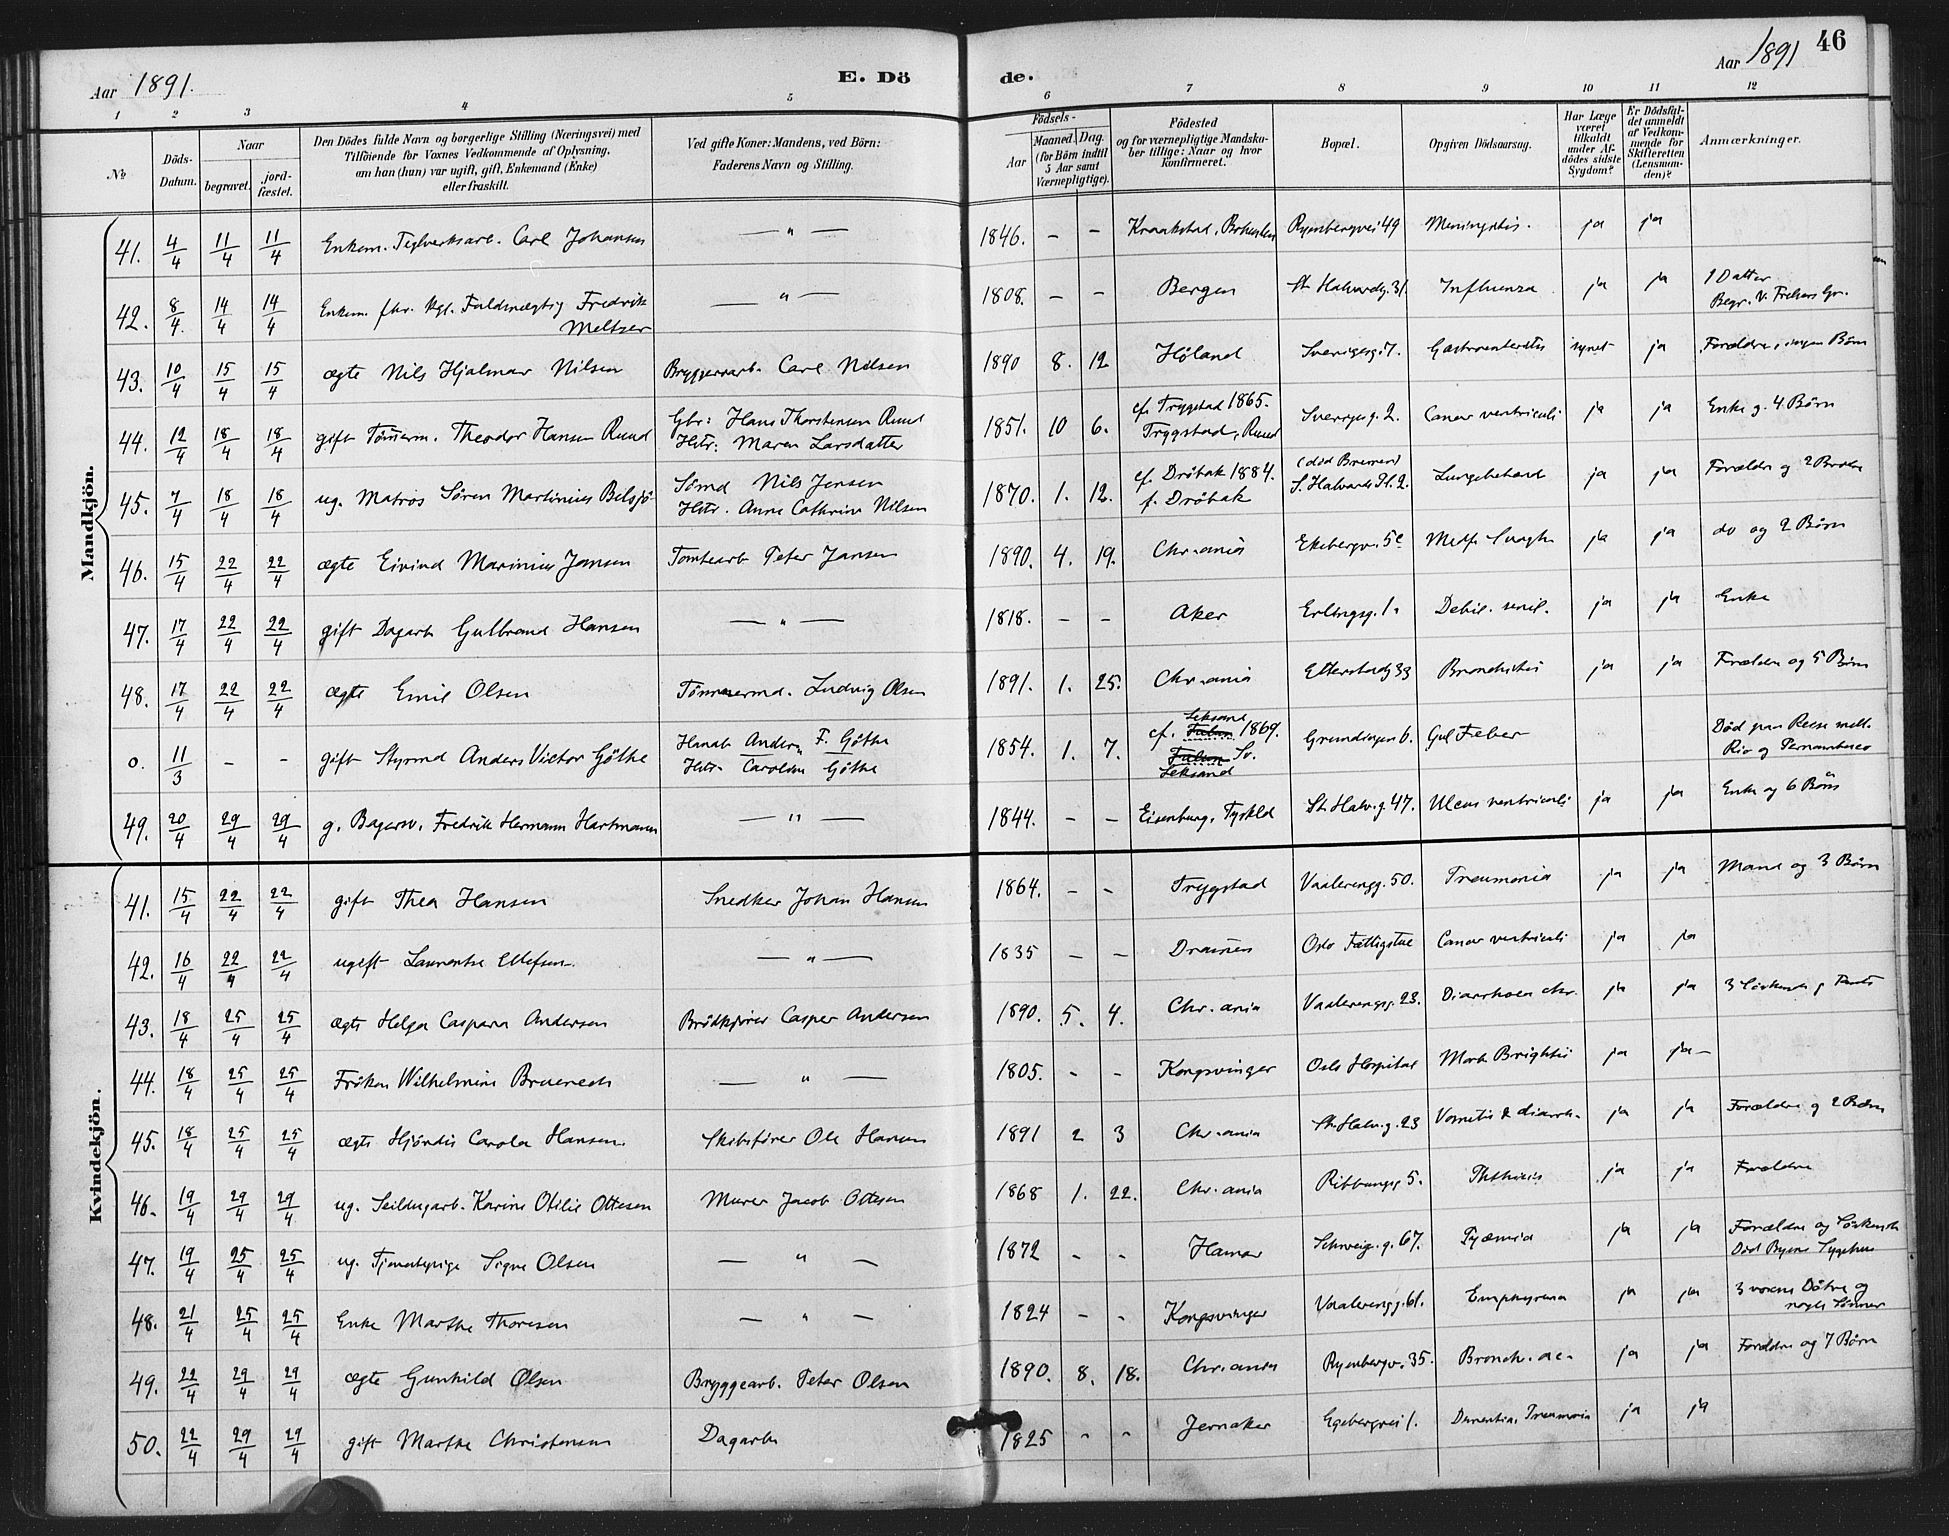 Aar 1891. E. Dö de. Aar 1891 46
1 2 3 4 5 6 7 8 9 10 11 12
№
Döds-Datum.
Naar
begravet. jord-fæstet.
Den Dödes fulde Navn og borgerlige Stilling (Næringsvei) med
Tilföiende for Voxnes Vedkommende af Oplysning,
om han (hun) var ugift, gift, Enkemand (Enke)
eller fraskilt.
Ved gifte Koner: Mandens, ved Börn:
Faderens Navn og Stilling.
Födsels-
Aar Maaned. Dag.
(for Börn indtil
5 Aar samt
Værnepligtige).
Födested
og for værnepligtige Mandska-
ber tillige: Naar og hvor
konfirmeret.
Bopæl.
Opgiven Dödsaarsag.
Har Læge
været
tilkaldt
under Af-
dödes sidste
Sygdom?
Er Dödsfal-
det anmeldt
af Vedkom-
mende for
Skifteretten
(Lensman-
den)?
Anmærkninger.
Mandkjön.
41. 4/4 11/4 11/4 Enkem. Teglverksarb. Carl Johansen — " — 1846. – – Kraakstad, Ryenbergvei 49 Meningitis. ja ja
42. 8/4. 14/4 14/4 Enkem. fhv. kgl. Fuldmægtig Fredrik — " — 1808. – – Bergen St. Halvardg. 31. Influenza ja ja 1 Datter
Meltzer Begr. V. Frelsers Gr.
43. 10/4 15/4 15/4 ægte Nils Hjalmar Nilsen Bryggeriarb. Carl Nilsen 1890 8. 12 Höland Sverigesg. 7. Gastroenteritis synet ja Forældre, ingen Børn
44. 12/4 18/4 18/4 gift Tömerm. Theodor Hansen Ruud Gbr: Hans Thorstensen Ruud 1851. 10 6. cf. Trygstad 1865. Sverresg. 2. Cancer ventriculi ja ja Enke g. 4 Børn
Hstr: Maren Larsdatter Trygstad, Ruud
45. 7/4 18/4 18/4 ug. Matros Sören Martinius Belsjö Sömd Nils Jensen 1870. 1. 12. cf. Dröbak 1884. (död Bremen) ja ja Forældre og 2 Brødre
Hstr. Anne Cathrine Nilsen f. Dröbak S. Halvards Pl. 2.
46. 15/4 22/4 22/4 ægte Eivind Marinius Jansen Tomtearb Peter Jansen 1890. 4. 19. Chr.ania Ekebergv. 5c Medf. Svagh. ja ja do og 2 Børn
47. 17/4 22/4 22/4 gift Dagarb Gulbrand Hansen — " — 1818. – – Aker Erlingsg. 1. Debil. senil. ja ja Enke
48. 17/4 22/4 22/4 ægte Emil Olsen Tömmermd. Ludvig Olsen 1891. 1. 25. Chr.ania Etterstadg 33 Bronchitis ja ja Forældre og 5 Børn
0. 11/3 – – gift Styrmd Anders Victor Göthe Anders F. Göthe 1854. 1. 7. cf. Leksand Falun 1869. 6. Gul Feber Död paa Reise mell.
Hstr. Carolina Göthe Falun Sv. Leksand Rio og Pernambuco
49. 20/4 29/4 29/4 g. Bagersv. Fredrik Hermann Hartmann — " — 1844. – – Eisenburg, Tyskld St. Halv. g. 47. Ulcus ventriculi ja ja Enke og 6 Børn
Kvindekjön.
41. 15/4 22/4 22/4 gift Thea Hansen Snedker Johan Hansen 1864. – – Trygstad Vaalerengg. 50. Pneumonia ja ja Mand og 3 Børn
42. 16/4 22/4 22/4 ugift Laurentse Ellefsen. — " — 1835 – – Drammen Oslo Fattigstue Cancer ventriculi ja ja
43. 18/4 25/4 25/4 ægte Helga Caspara Andersen Brödkjörer Casper Andersen 1890. 5. 4. Chr.ania Vaalerengg. 23. Diarrhoea chr. ja ja 3 Söskende
44. 18/4 25/4 25/4 Fröken Wilhelmine Bruenech — " — 1805. – – Kongsvinger Oslo Hospital Morb. Brightii ja ja –
45. 18/4 25/4 25/4 ægte Hjördis Carola Hansen. Skibsförer Ole Hansen 1891 2 3 Chr.ania St. Halv. g. 23 Vomitus & diarrh. ja ja Forældre g 2 Børn
46. 19/4 29/4 29/4 ug. Seildugarb. Karine Otilie Ottesen Murer Jacob Ottesen 1868 1. 22. Chr.ania Ribbungg 5. Phthisis ja ja Forældre
47. 19/4 25/4 25/4 ug. Tjenestepige Signe Olsen — " — 1872 – – Hamar Schweig. g. 67. Pyæmia ja ja Forældre og Söskende
Död Byens Sygehus
48. 21/4 25/4 25/4 Enke Marthe Thoresen — " — 1824 – – Kongsvinger Vaalerengg. 61. Emphysema ja ja 3 voxne Døtre og
nogle Sønner
49. 22/4 29/4 29/4 ægte Gunhild Olsen Bryggearb. Peter Olsen 1890. 8. 18. Chr.ania Ryenbergv. 35. Bronch. ac. ja ja Forældre og 7 Børn
50. 22/4 29/4 29/4 gift Marthe Christensen Dagarb 1825 – – Jevnaker Egebergvei 1. Dementia, Pneumonia ja ja